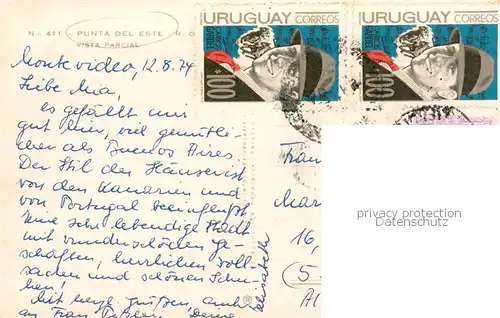 N.o 411 - PUNTA DEL ESTE - R. O
VISTA PARCIAL
URUGUAY
CORREOS
100
URUGUAY
CORREOS
100
Montevideo, 12.8.74
Liebe Ma,
es gefällt mir
gut hier, viel gemütli-
cher als Buenos Aires.
Der Stil der Häuser ist
von den Kanarien und
von Portugal beeinflußt
Eine sehr lebendige Stadt
mit wunderschönen Ge-
schäften, herrlichen Woll-
sachen und schönen Schu-
hen!
Mit herzl. Grüßen, auch
an Frau Deine
Elisabeth
Frau
Mar
16,
5
privacy protection
Datenschutz